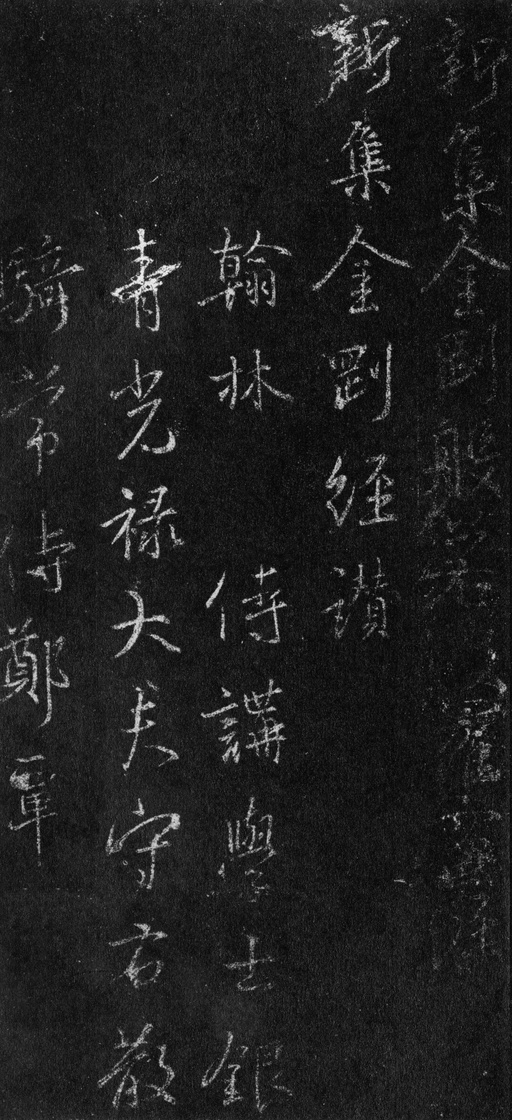 新集金剛般若
新集金剛經讚
翰林 侍講學士銀
青光禄大夫守右散
騎常侍鄭覃